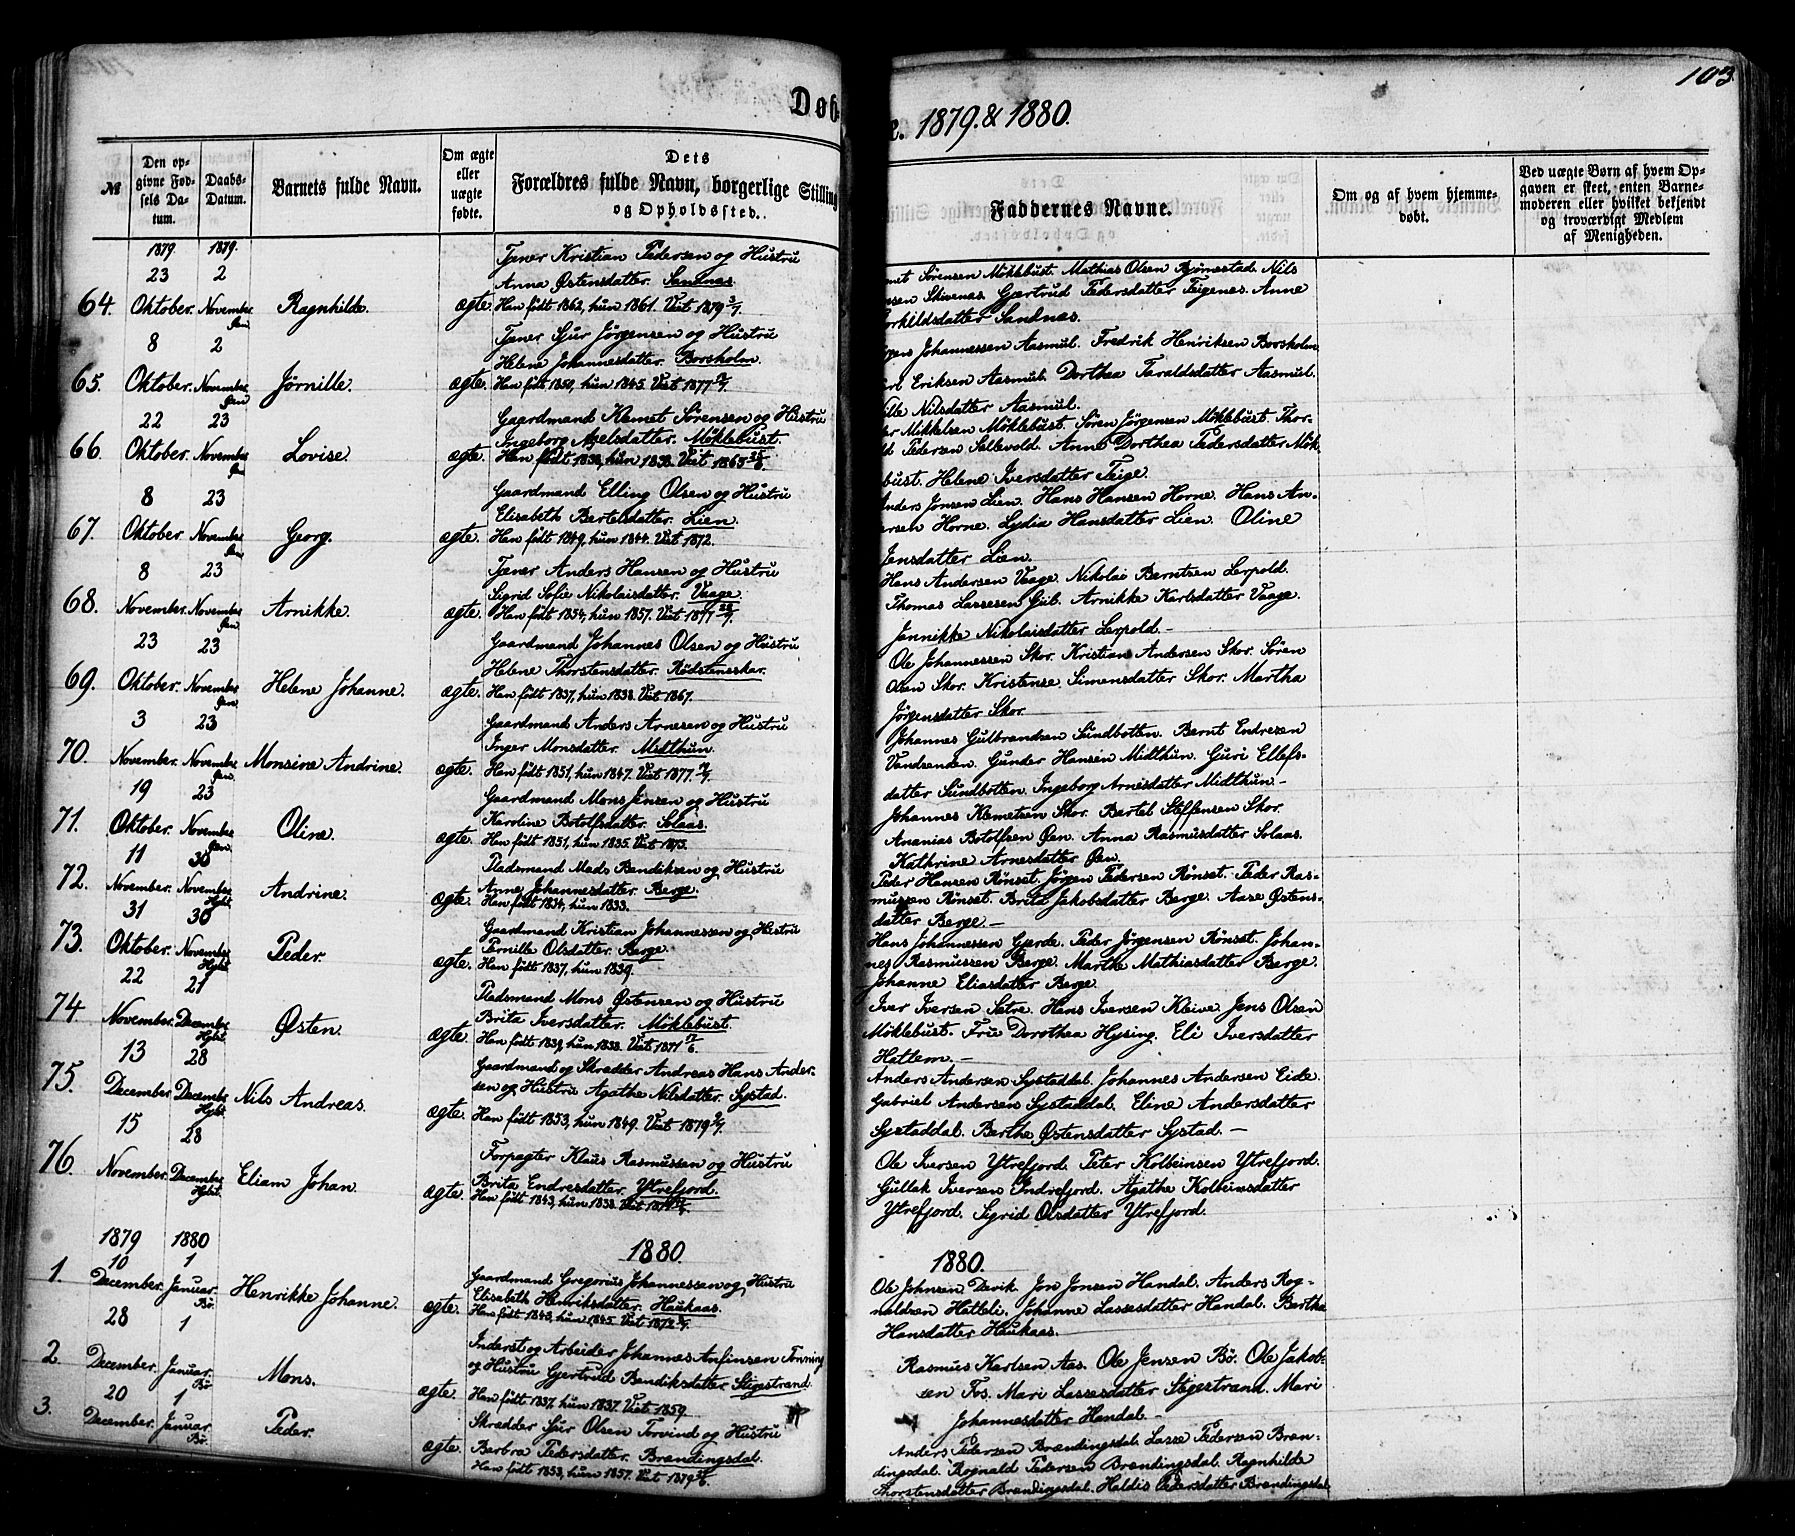 103
Døb
1879. & 1880.
№
Den opgivne Fødsels Datum.
Daabs-Datum.
Barnets fulde Navn.
Om ægte eller uægte fødte.
Dets Forældres fulde Navn, borgerlige Stilling og Opholdssted.
Faddernes Navne.
Om og af hvem hjemmedøbt.
Ved uægte Børn af hvem Opgaven er skeet, enten Barnemoderen eller hvilket bekjendt og troværdigt Medlem af Menigheden.
1879. 1879.
23 2 Tjener Kristian Pedersen og Hustru
Anna Østensdatter. Sandnes.
64. Oktober. November. Ragnhilde. ægte. Han født 1862, hun 1861. Viet 1879
Sørensen Møklebust. Mathias Olsen Bjørnestad. Nils
Skivenæs. Gjertrud Pedersdatter Teigenes. Anne
Sandnæs.
8 2 Tjener Sjur Jørgensen og Hustru
Helene Johannesdatter. Borsholm.
65. Oktober. November. Jørnille. ægte. Han født 1850, hun 1845. Viet 1877
Johannessen Aasmul. Fredrik Henriksen Borsholm
Eriksen Aasmul. Dorthea Taraldsdatter Aasmul.
Nilsdatter Aasmul.
22 23 Gaardmand Klemet Sørensen og Hustru
Ingeborg Axelsdatter. Møklebust.
66. Oktober. November. Lovise. ægte. Han født 1838, hun 1838. Viet 1865
Mikkelsen Møklebust. Søren Jørgensen Møklebust. Thor-
Pedersen Sallevold. Anne Dorthea Pedersdatter Møk
bust. Helene Iversdatter Teige.
8 23 Gaardmand Elling Olsen og Hustru
Elisabeth Bertelsdatter. Lien.
67. Oktober. November. Georg. ægte. Han født 1849, hun 1844. Viet 1872.
Jonsen Lien. Hans Hansen Horne. Hans An-
ersen Horne. Lydia Hansdatter Lien. Oline
Jensdatter Lien.
8 23 Tjener Anders Hansen og Hustru
Sigrid Sofie Nikolaisdatter. Vaage.
68. November. November. Arnikke. ægte. Han født 1854, hun 1857. Viet 1877
Hans Andersen Vaage. Nikolai Berntsen Lerpold.
Thomas Lassesen Gul. Arnikke Karlsdatter Vaage.
Jannikke Nikolaisdatter Lerpold. -
23 23 Gaardmand Johannes Olsen og Hustru
Helene Thorstensdatter. Rødsteneskar.
69. Oktober. November. Helene Johanne. ægte. Han født 1837, hun 1838. Viet 1867.
Ole Johannessen Skor. Kristian Andersen Skor. Søren
Olsen Skor. Kristense Simensdatter Skor. Martha
Jørgensdatter Skor.
3 23 Gaardmand Anders Arnesen og Hustru
Inger Monsdatter. Midthun.
70. November. November. Monsine Andrine. ægte. Han født 1851, hun 1847. Viet 1877.
Johannes Gulbrandsen Sundbotten. Bernt Endresen
Vandsenden. Gunder Hansen Midthun. Guri Ellefs-
datter Sundbotten. Ingeborg Arnesdatter Midthun -
19 23 Gaardmand Mons Jensen og Hustru
Karoline Botolfsdatter. Solaas.
71. Oktober. November. Oline. ægte. Han født 1851, hun 1835. Viet 1873.
Johannes Klemetsen Skor. Bertel Steffensen Skor.
Ananias Botolfsen Øen. Anna Rasmusdatter Solaas.
Kathrine Arnesdatter Øen.
11 30 Pladsmand Mads Bendiksen og Hustru
Anne Johannesdatter. Berge.
72. November. November. Andrine. ægte. Han født 1834, hun 1833.
Peder Hansen Rønset. Jørgen Pedersen Rønset. Peder Ras-
mussen Rønset. Brita Jakobsdatter Berge. Aase Østens-
datter Berge. -
31 30 Gaardmand Kristian Johannessen og Hustru
Pernille Olsdatter. Berge.
73. Oktober. November. Peder. ægte. Han født 1837, hun 1839.
Hans Johannessen Gjerde. Peder Jørgensen Rønset. Johan-
nes Rasmussen Berge. Marthe Mathiasdatter Berge.
Johanne Eliasdatter Berge.
22 21 Pladsmand Mons Østensen og Hustru
Brita Iversdatter. Møklebust.
74 November. December. Østen. ægte. Han født 1839, hun 1838. Viet 1871
Iver Iversen Sætre. Hans Iversen Kleive. Jens Olsen
Møklebust. Frue Dorothea Hysing. Eli Iversdatter
Hattem. -
13 28 Gaardmand og Skrædder Andreas Hans Ander-
sen og Hustru Agathe Nilsdatter. Systad.
75. December. December. Nils Andreas. ægte. Han født 1853, hun 1849. Viet 1879
Anders Andersen Systaddal. Johannes Andersen Eide.
Gabriel Andersen Systaddal. Eline Andersdatter
Systaddal. Berthe Østensdatter Systad. -
15 28 Forpagter Klaus Rasmussen og Hustru
Brita Endresdatter. Ytrefjord.
76 November. December. Eliam Johan. ægte. Han født 1843, hun 1838.
Ole Iversen Ytrefjord. Peter Kolbeinsen Ytrefjord.
Gullak Iversen Indrefjord. Agathe Kolbeinsdatter
Ytrefjord. Sigrid Olsdatter Ytrefjord.
1879 1880
1880. 1880.
10 1 Gaardmand Gregorius Johannessen og Hustru
Elisabeth Henriksdatter. Haukaas.
1. December. Januar. Bø. Henrikke Johanne. ægte. Han født 1843, hun 1845. Viet 1872
Ole Johnsen Devik. Jon Jonsen Handal. Anders Rog-
naldsen Hatleli. Johanne Lassesdatter Handal. Bertha
Hansdatter Haukaas.
28 1 Inderst og Arbeider Johannes Anfinsen Tønning
og Hustru Gjertrud Bendiksdatter. Stigestrand.
2. December. Januar. Bø. Mons. ægte. Han født 1837, hun 1837. Viet 1859.
Rasmus Karlsen Aas. Ole Jensen Bø. Ole Jakob-
sen Fos. Mari Lassesdatter Stigestrand. Mari
Johannesdatter Handal -
20 1 Skrædder Sjur Olsen Torvind og Hustru
Barbra Pedersdatter. Brændingsdal.
3. December. Januar. Bø. Peder. ægte. Han født 1853, hun 1857. Viet 1879
Anders Pedersen Brændingsdal. Lasse Pedersen Bræn-
dingsdal. Rognald Pedersen Brændingsdal. Ragnhilde
Thorstensdatter Brændingsdal. Haldis Pedersdatter Brændingsdal